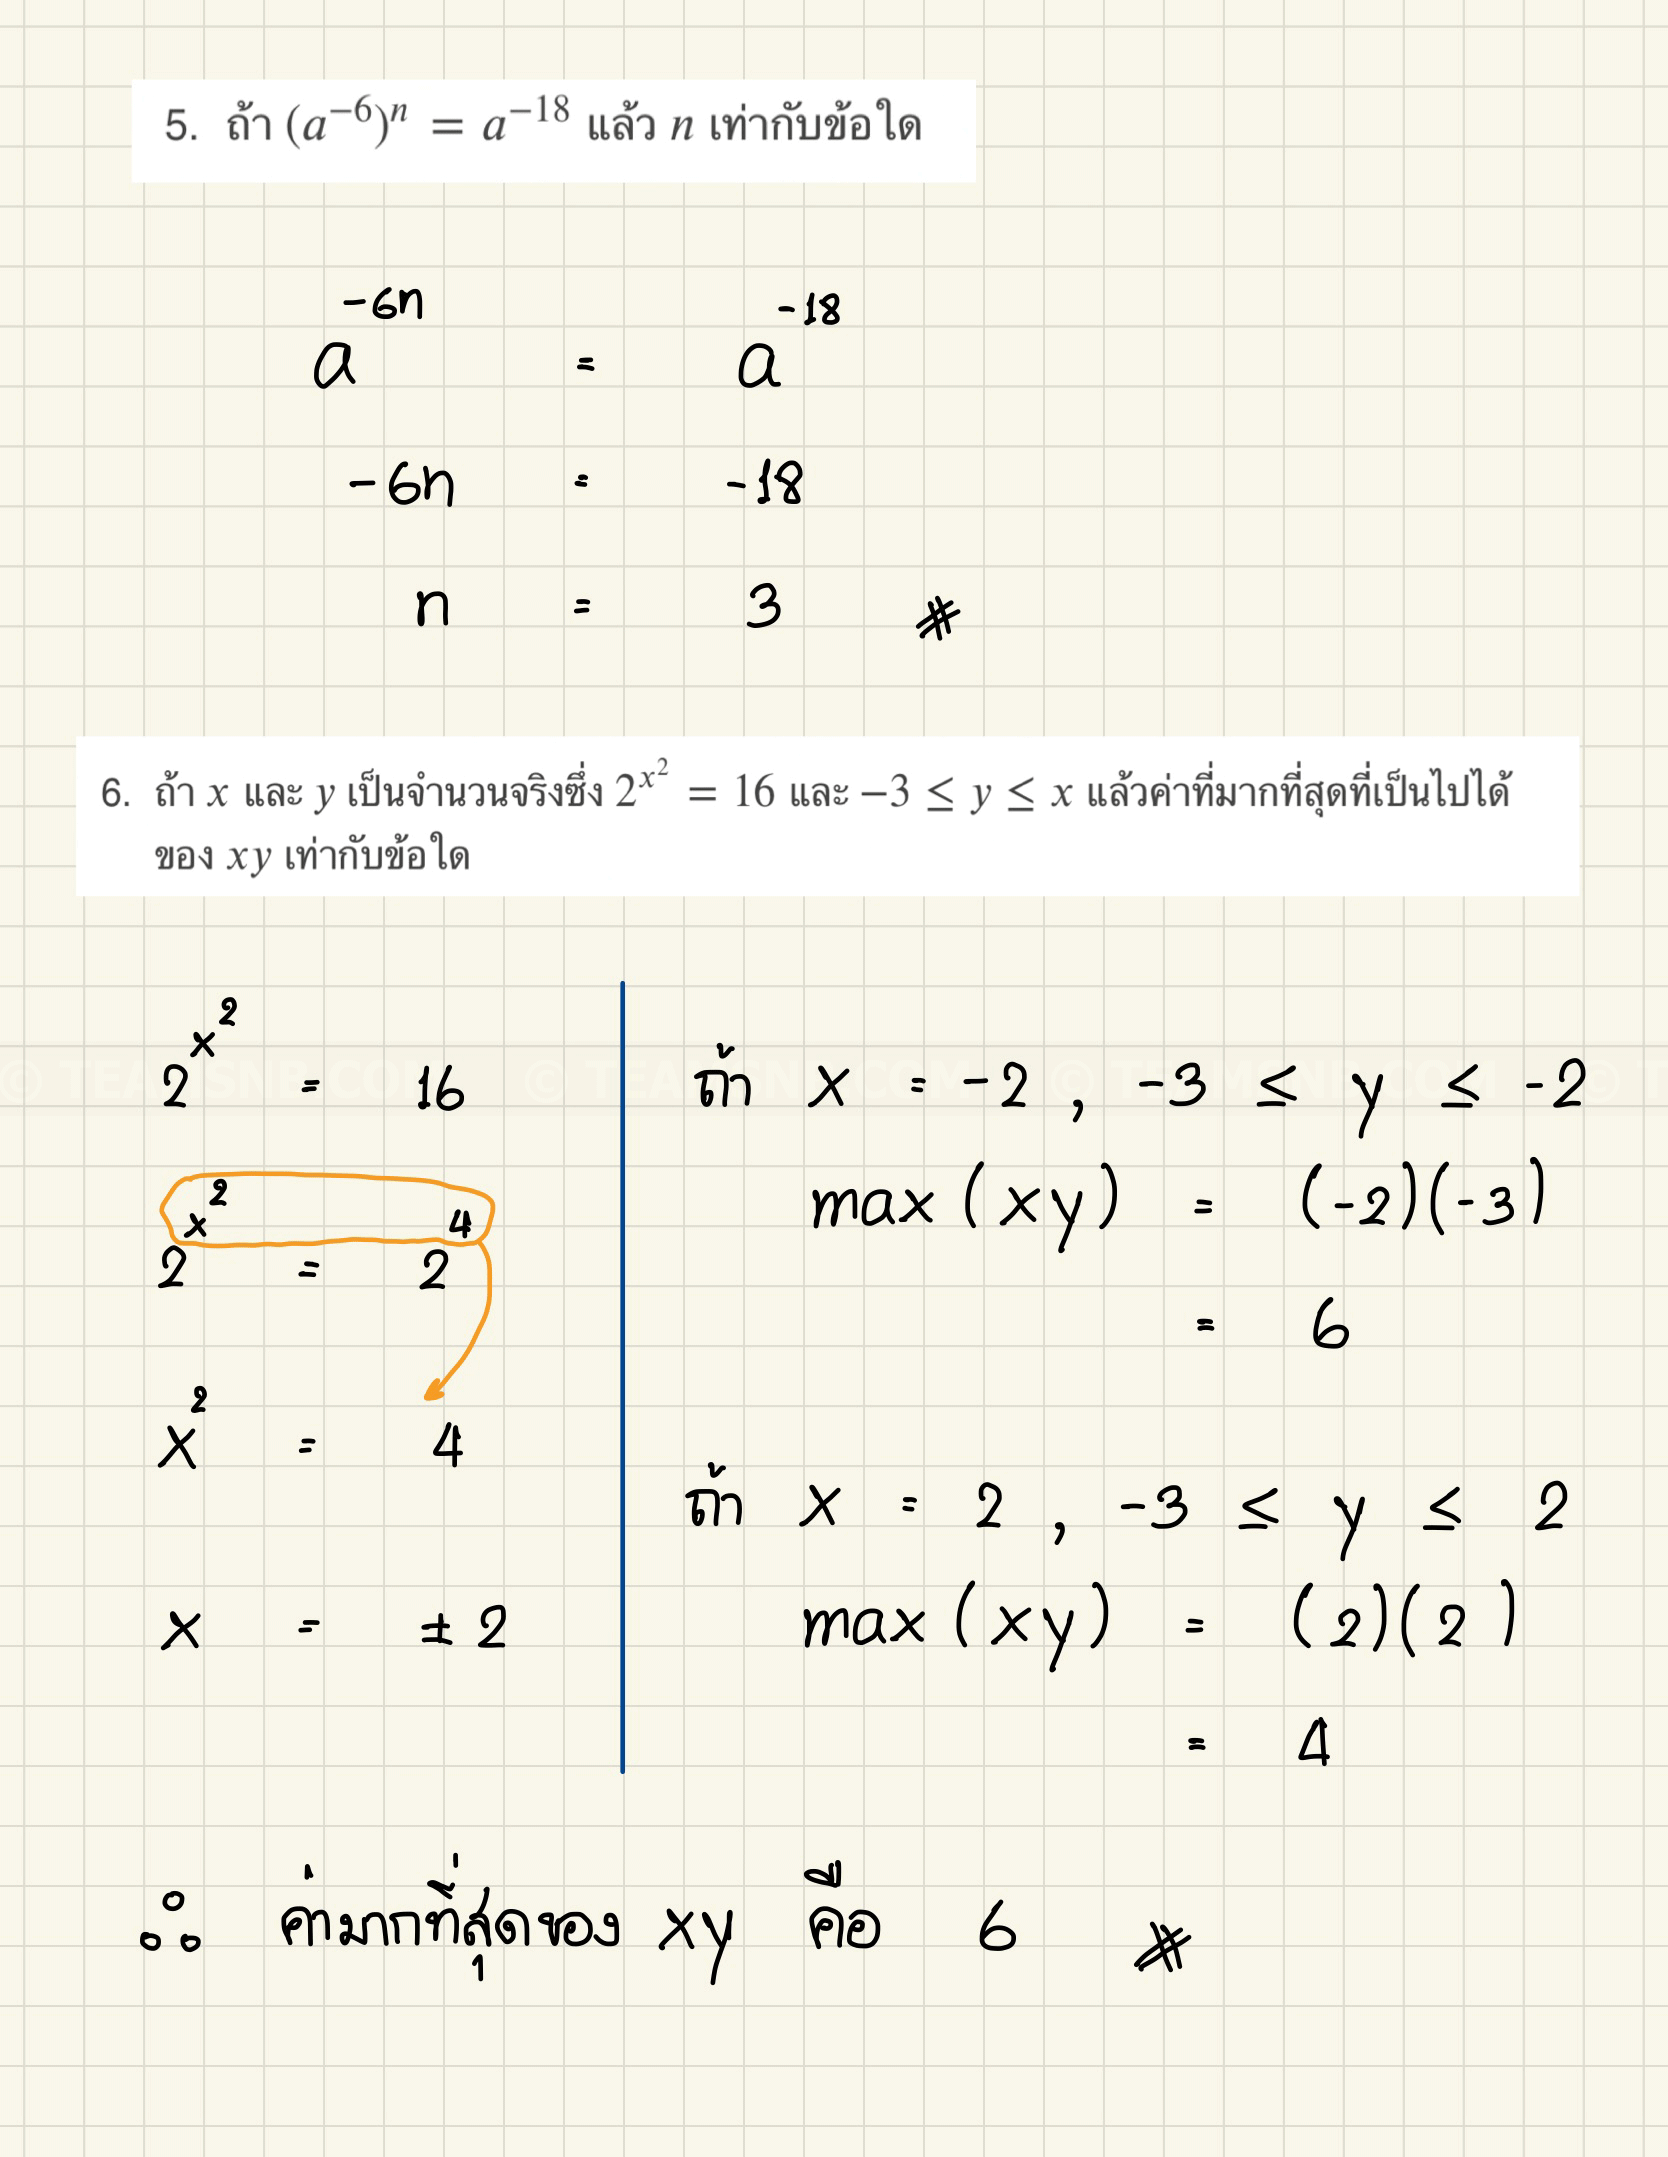 5. ถ้า (a⁻⁶)ⁿ = a⁻¹⁸ แล้ว n เท่ากับข้อใด
a^{-6n} = a^{-18}
-6n = -18
n = 3 #
6. ถ้า x และ y เป็นจำนวนจริงซึ่ง 2^{x^2} = 16 และ −3 ≤ y ≤ x แล้วค่าที่มากที่สุดที่เป็นไปได้
ของ xy เท่ากับข้อใด
2^{x^2} = 16
2^{x^2} = 2^4
x² = 4
x = ±2
ถ้า x = -2 , -3 ≤ y ≤ -2
max (xy) = (-2)(-3)
= 6
ถ้า x = 2 , -3 ≤ y ≤ 2
max (xy) = (2)(2)
= 4
∴ ค่ามากที่สุดของ xy คือ 6 #